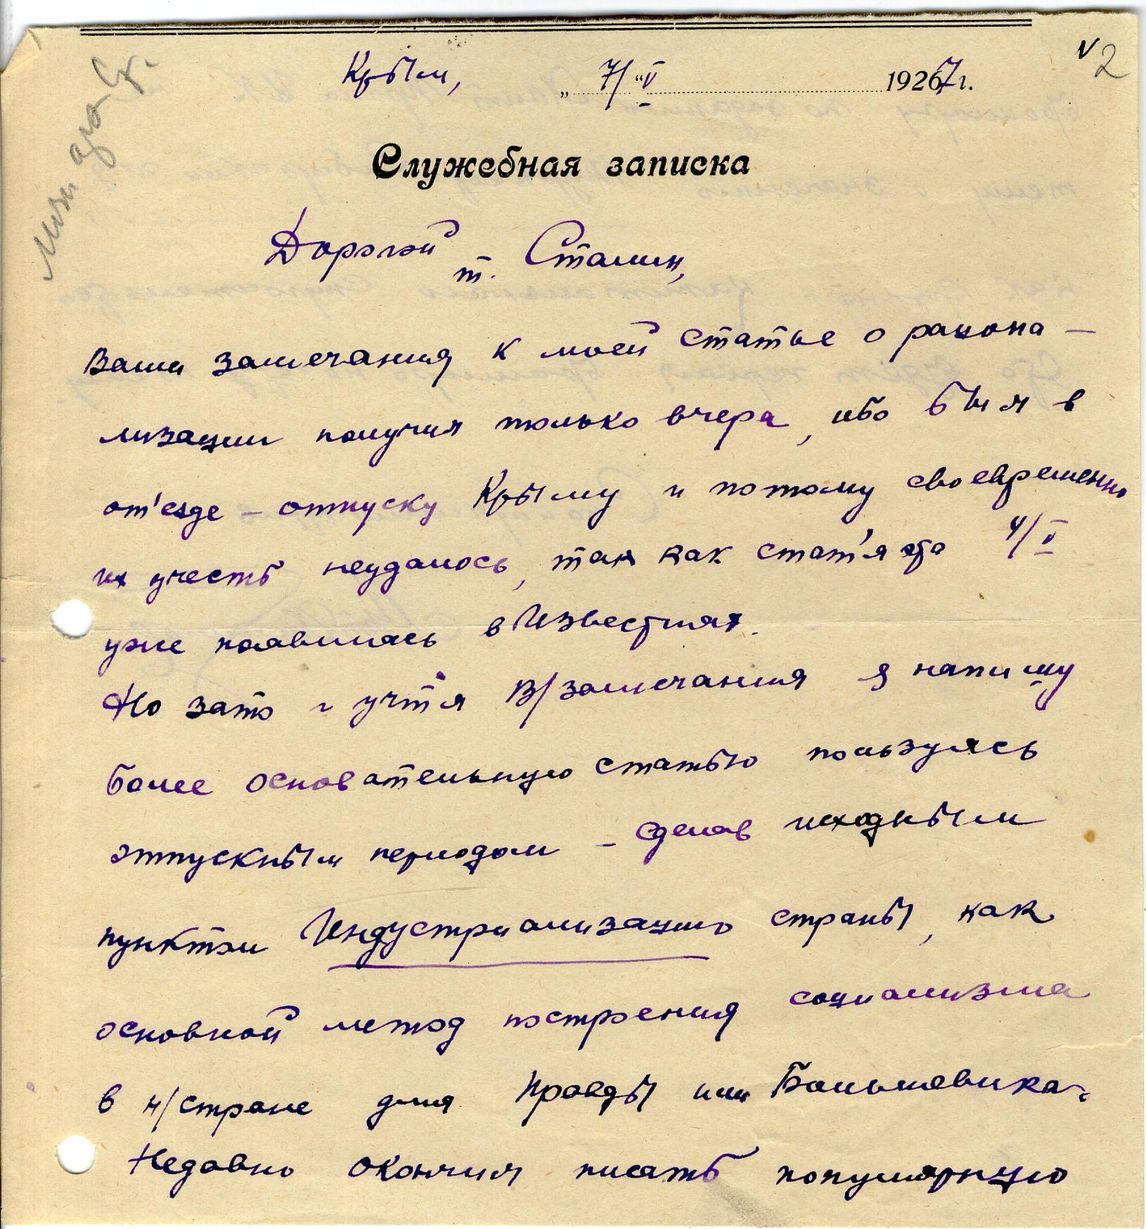 Крым, „7/"V 1926 7 г.
№2
Служебная записка
Дорогой т. Сталин,
Ваши замечания к моей статье о рациона-
лизации получил только вчера, ибо был в
от'езде – отпуску Крыму и потому своевременно
их учесть неудалось, так как стат'я эта 4/V
уже появилась в Известиях.
Но зато и учтя В/замечания я напишу
более основательную статью пользуясь
отпускным периодом – сделав исходным
пунктом Индустриализацию страны, как
основной метод построения социализма
в н/стране для Правды или Большевика.
Недавно окончил писать популярную